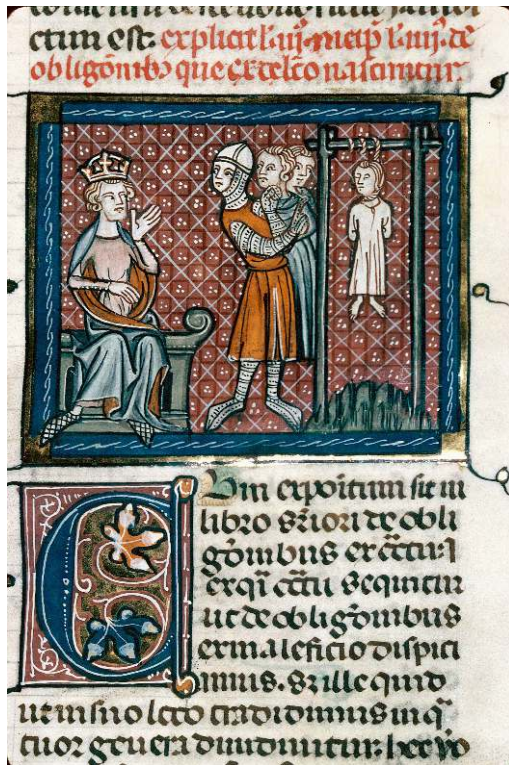 ctum est. explicit l. iij. incip l. iiij. de
obligonib que ex delcto nascuntur.
Cum expoitum sit in
libro sriori de obli
gonibus ex cctu
ex qi cctu sequitur
ut de obligonibus
ex maleficio dispici
amus. Sz ille quid
ut in suo loco tradidimus in q
tuor genera diuiduntur hec vo